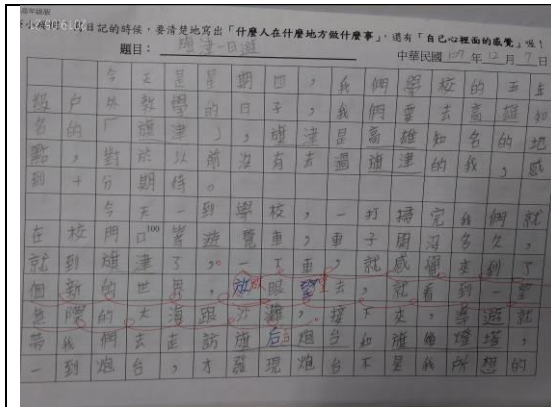 小朋友，寫日記的時候，要清楚地寫出「什麼人在什麼地方做什麼事」，還有「自己心裡面的感覺」喔！
題目：旗津一日遊
中華民國107年12月7日
今天是星期四，我們學校的五年
級戶外教學的日子，我們要去高雄知
名的「旗津」，旗津是高雄知名的地
點，對於以前沒有去過旗津的我，感
到十分期待。
今天一到學校，一打掃完我們就
在校門口等遊覽車，車子開沒多久，
100
就到旗津了。一下車，就感覺來到了
個新的世界，放眼望去，就看到一望
無際的大海跟沙灘，接下來，導遊就
帶我們去走訪旗后炮台和旗後燈塔，
一到炮台，才發現炮台不是我所想的